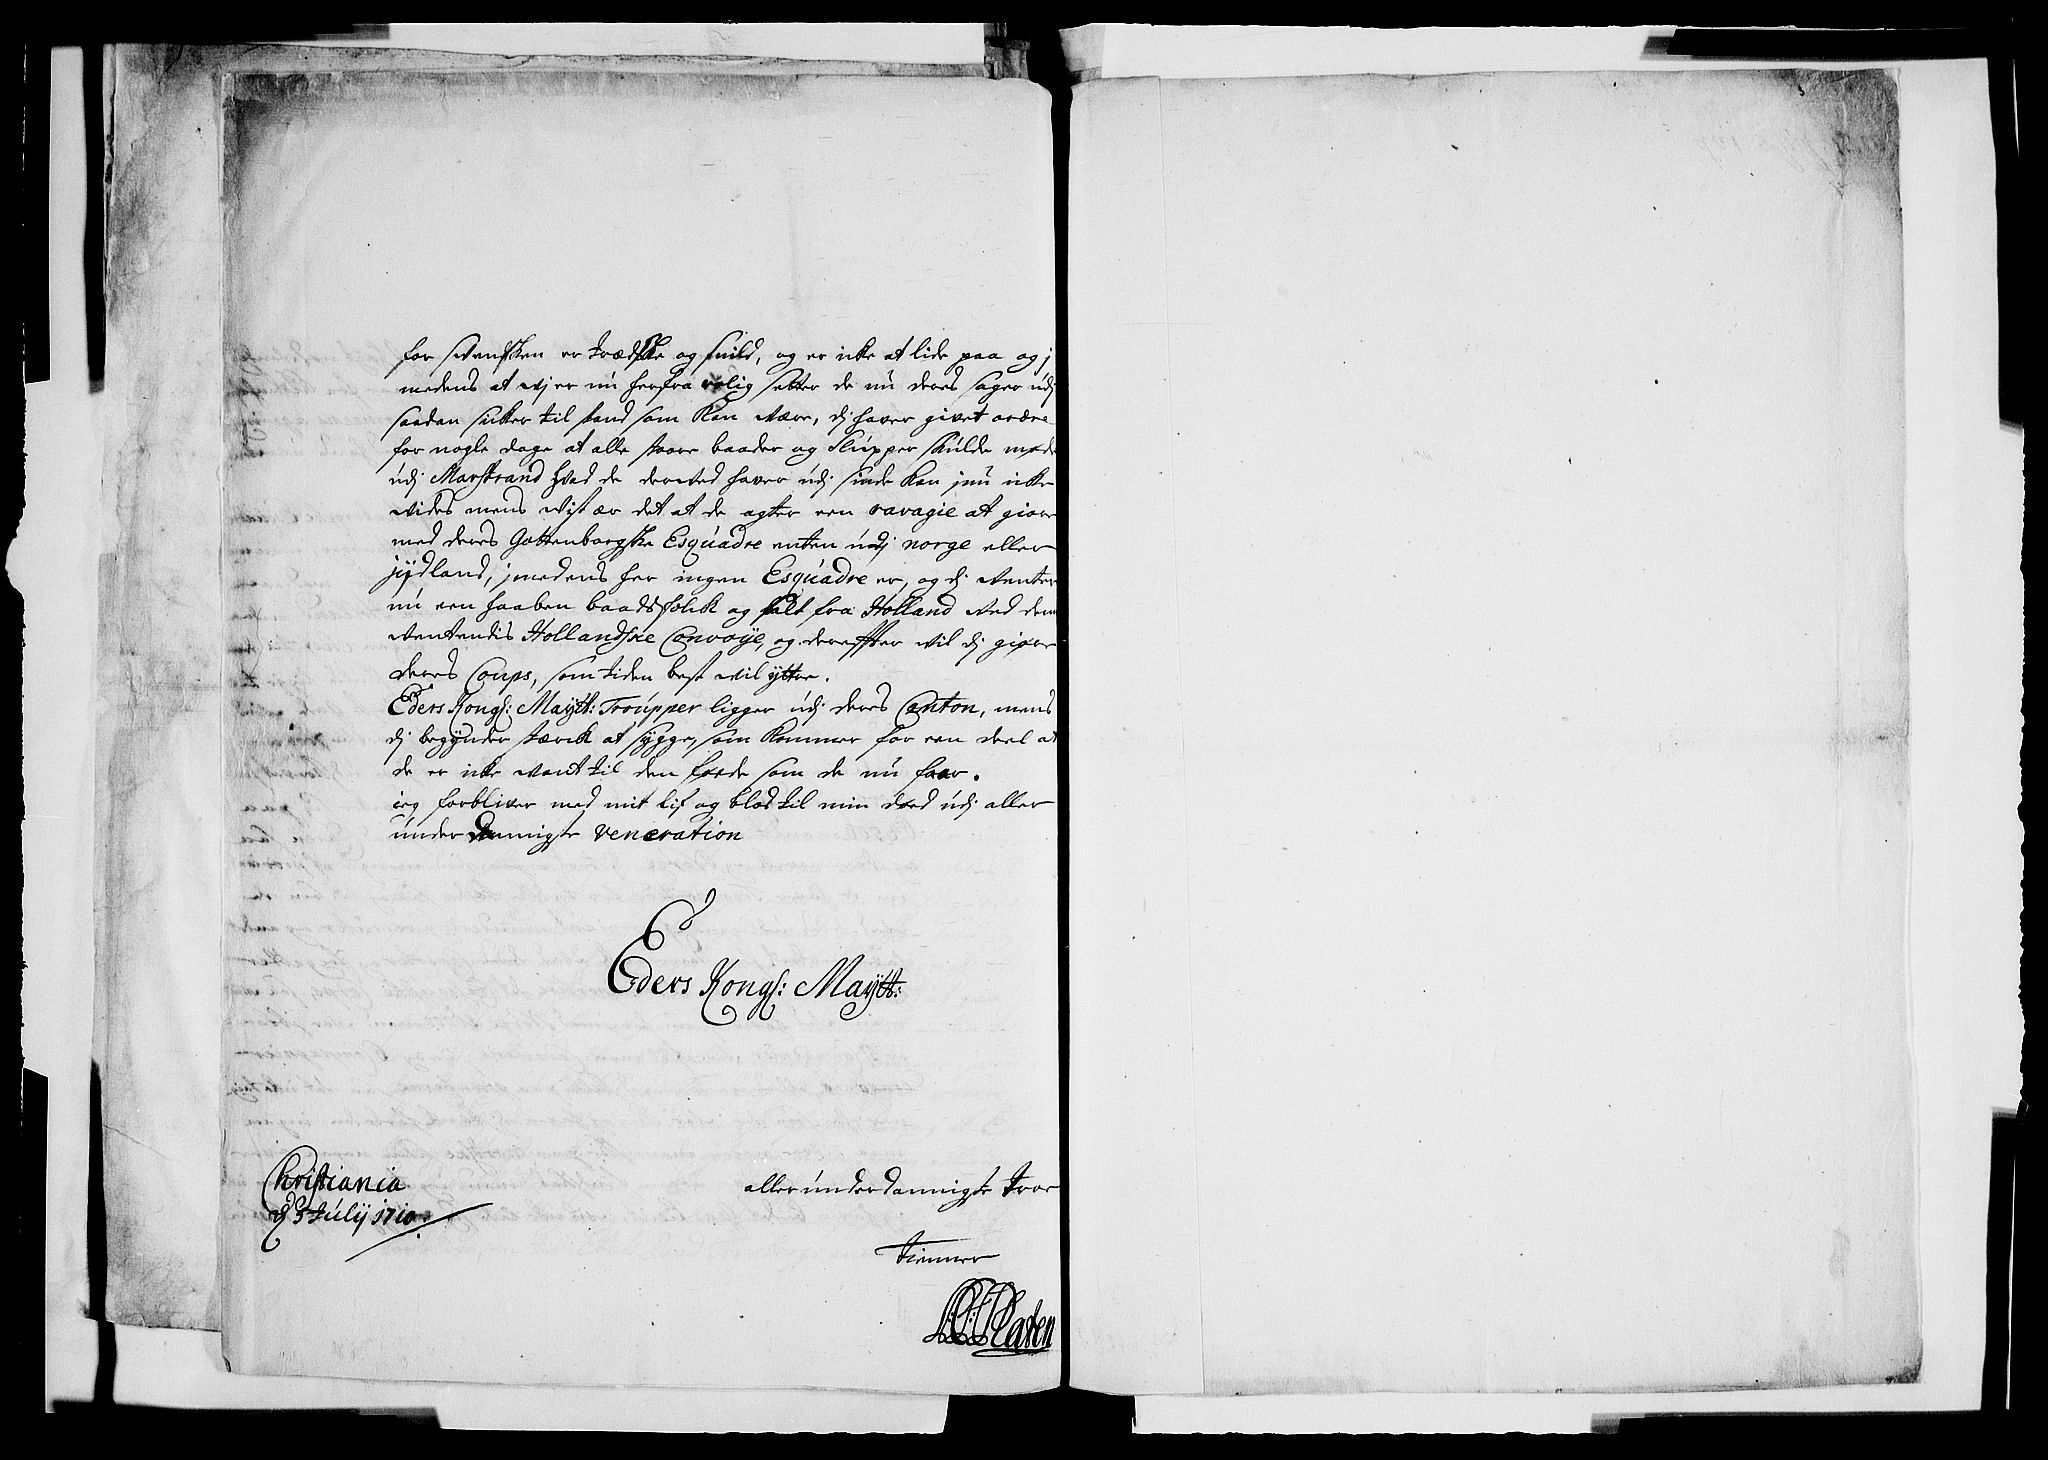 for Svensken er trædske og snild, og er ikke at lide paa og j
medens at vj er nu herfra rolig setter de nu deres sager udj
saadan sikker til stand som kan være, dj haver givet ordre
for nogle dage at alle store baader og Slupper skulde møde
udj Marstrand hvad de derved haver udj sinde kan jnu ikke
vides mens vist ær det at de agter een ravagie at giøre
med deres Gottenborgske Esquadre enten udj norge eller
jydland, jmedens her ingen Esquadre er, og dj venter
nu een haaben baadsfolck og salt fra Holland ved den
ventendis Hollandske Convoye, og derefter vil dj giøre
deres Coups, som tiden best vil yttre.
Eders Kongl: Maytt: Troupper ligger udj deres Canton, mens
dj begynder stærck at sygge, som kommer for een deel at
de er ikke vant til den føde som de nu faar.
ieg forbliver med mit lif og blod til min død udj aller
under dannigste veneration
Eders Kongl: Maytt:
Christiania
d 5 July 1710.
allerunderdannigste troe
tienner
Platen